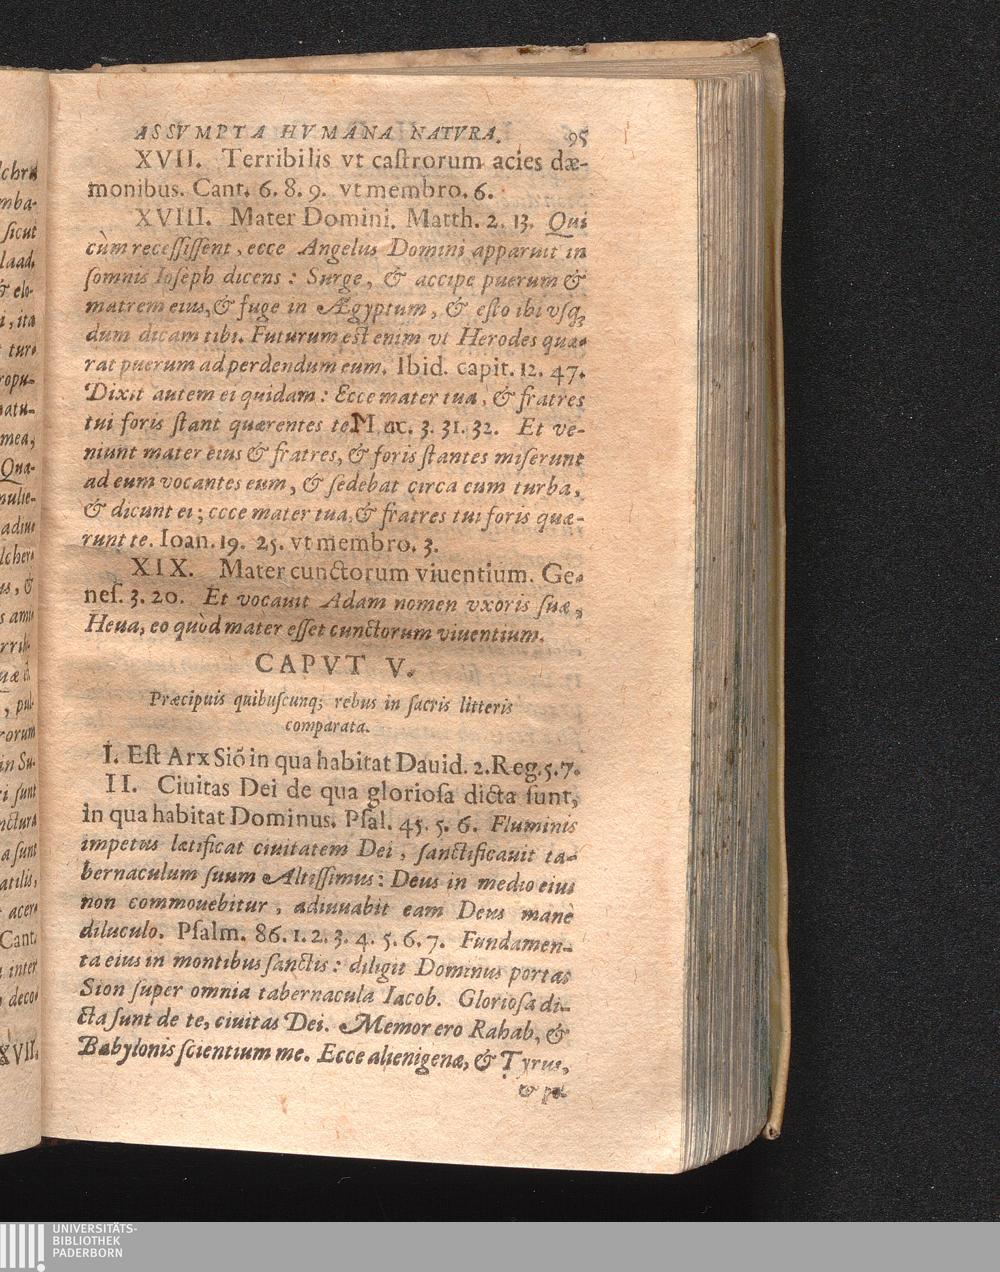 ASSVMPTA HVMANA NATVRA. 95
XVII. Terribilis vt castrorum acies dæ-
monibus. Cant. 6. 8. 9. vt membro. 6.
XVIII. Mater Domini. Matth. 2. 13. Qui
cùm recessissent, ecce Angelus Domini apparuit in
somnis Ioseph dicens: Surge, & accipe puerum &
matrem eius, & fuge in Ægyptum, & esto ibi vsq;
dum dicam tibi. Futurum est enim vt Herodes quæ-
rat puerum ad perdendum eum. Ibid. capit. 12. 47.
Dixit autem ei quidam: Ecce mater tua, & fratres
tui foris stant quærentes te. Marc. 3. 31. 32. Et ve-
niunt mater eius & fratres, & foris stantes miserunt
ad eum vocantes eum, & sedebat circa eum turba,
& dicunt ei; ccce mater tua, & fratres tui foris quæ-
runt te. Ioan. 19. 25. vt membro. 3.
XIX. Mater cunctorum viuentium. Ge-
nes. 3. 20. Et vocauit Adam nomen vxoris suæ,
Heua, eo quòd mater esset cunctorum viuentium.
CAPVT V.
Præcipuis quibuscunq; rebus in sacris litteris
comparata.
I. Est Arx Siõ in qua habitat Dauid. 2. Reg. 5. 7.
II. Ciuitas Dei de qua gloriosa dicta sunt,
in qua habitat Dominus. Psal. 45. 5. 6. Fluminis
impetus lætificat ciuitatem Dei, sanctificauit ta-
bernaculum suum Altissimus: Deus in medio eius
non commouebitur, adiuuabit eam Deus manè
diluculo. Psalm. 86. 1. 2. 3. 4. 5. 6. 7. Fundamen-
ta eius in montibus sanctis: diligit Dominus portas
Sion super omnia tabernacula Iacob. Gloriosa di-
cta sunt de te, ciuitas Dei. Memor ero Rahab, &
Babylonis scientium me. Ecce alienigenæ, & Tyrus,
UNIVERSITÄTS-
BIBLIOTHEK
PADERBORN